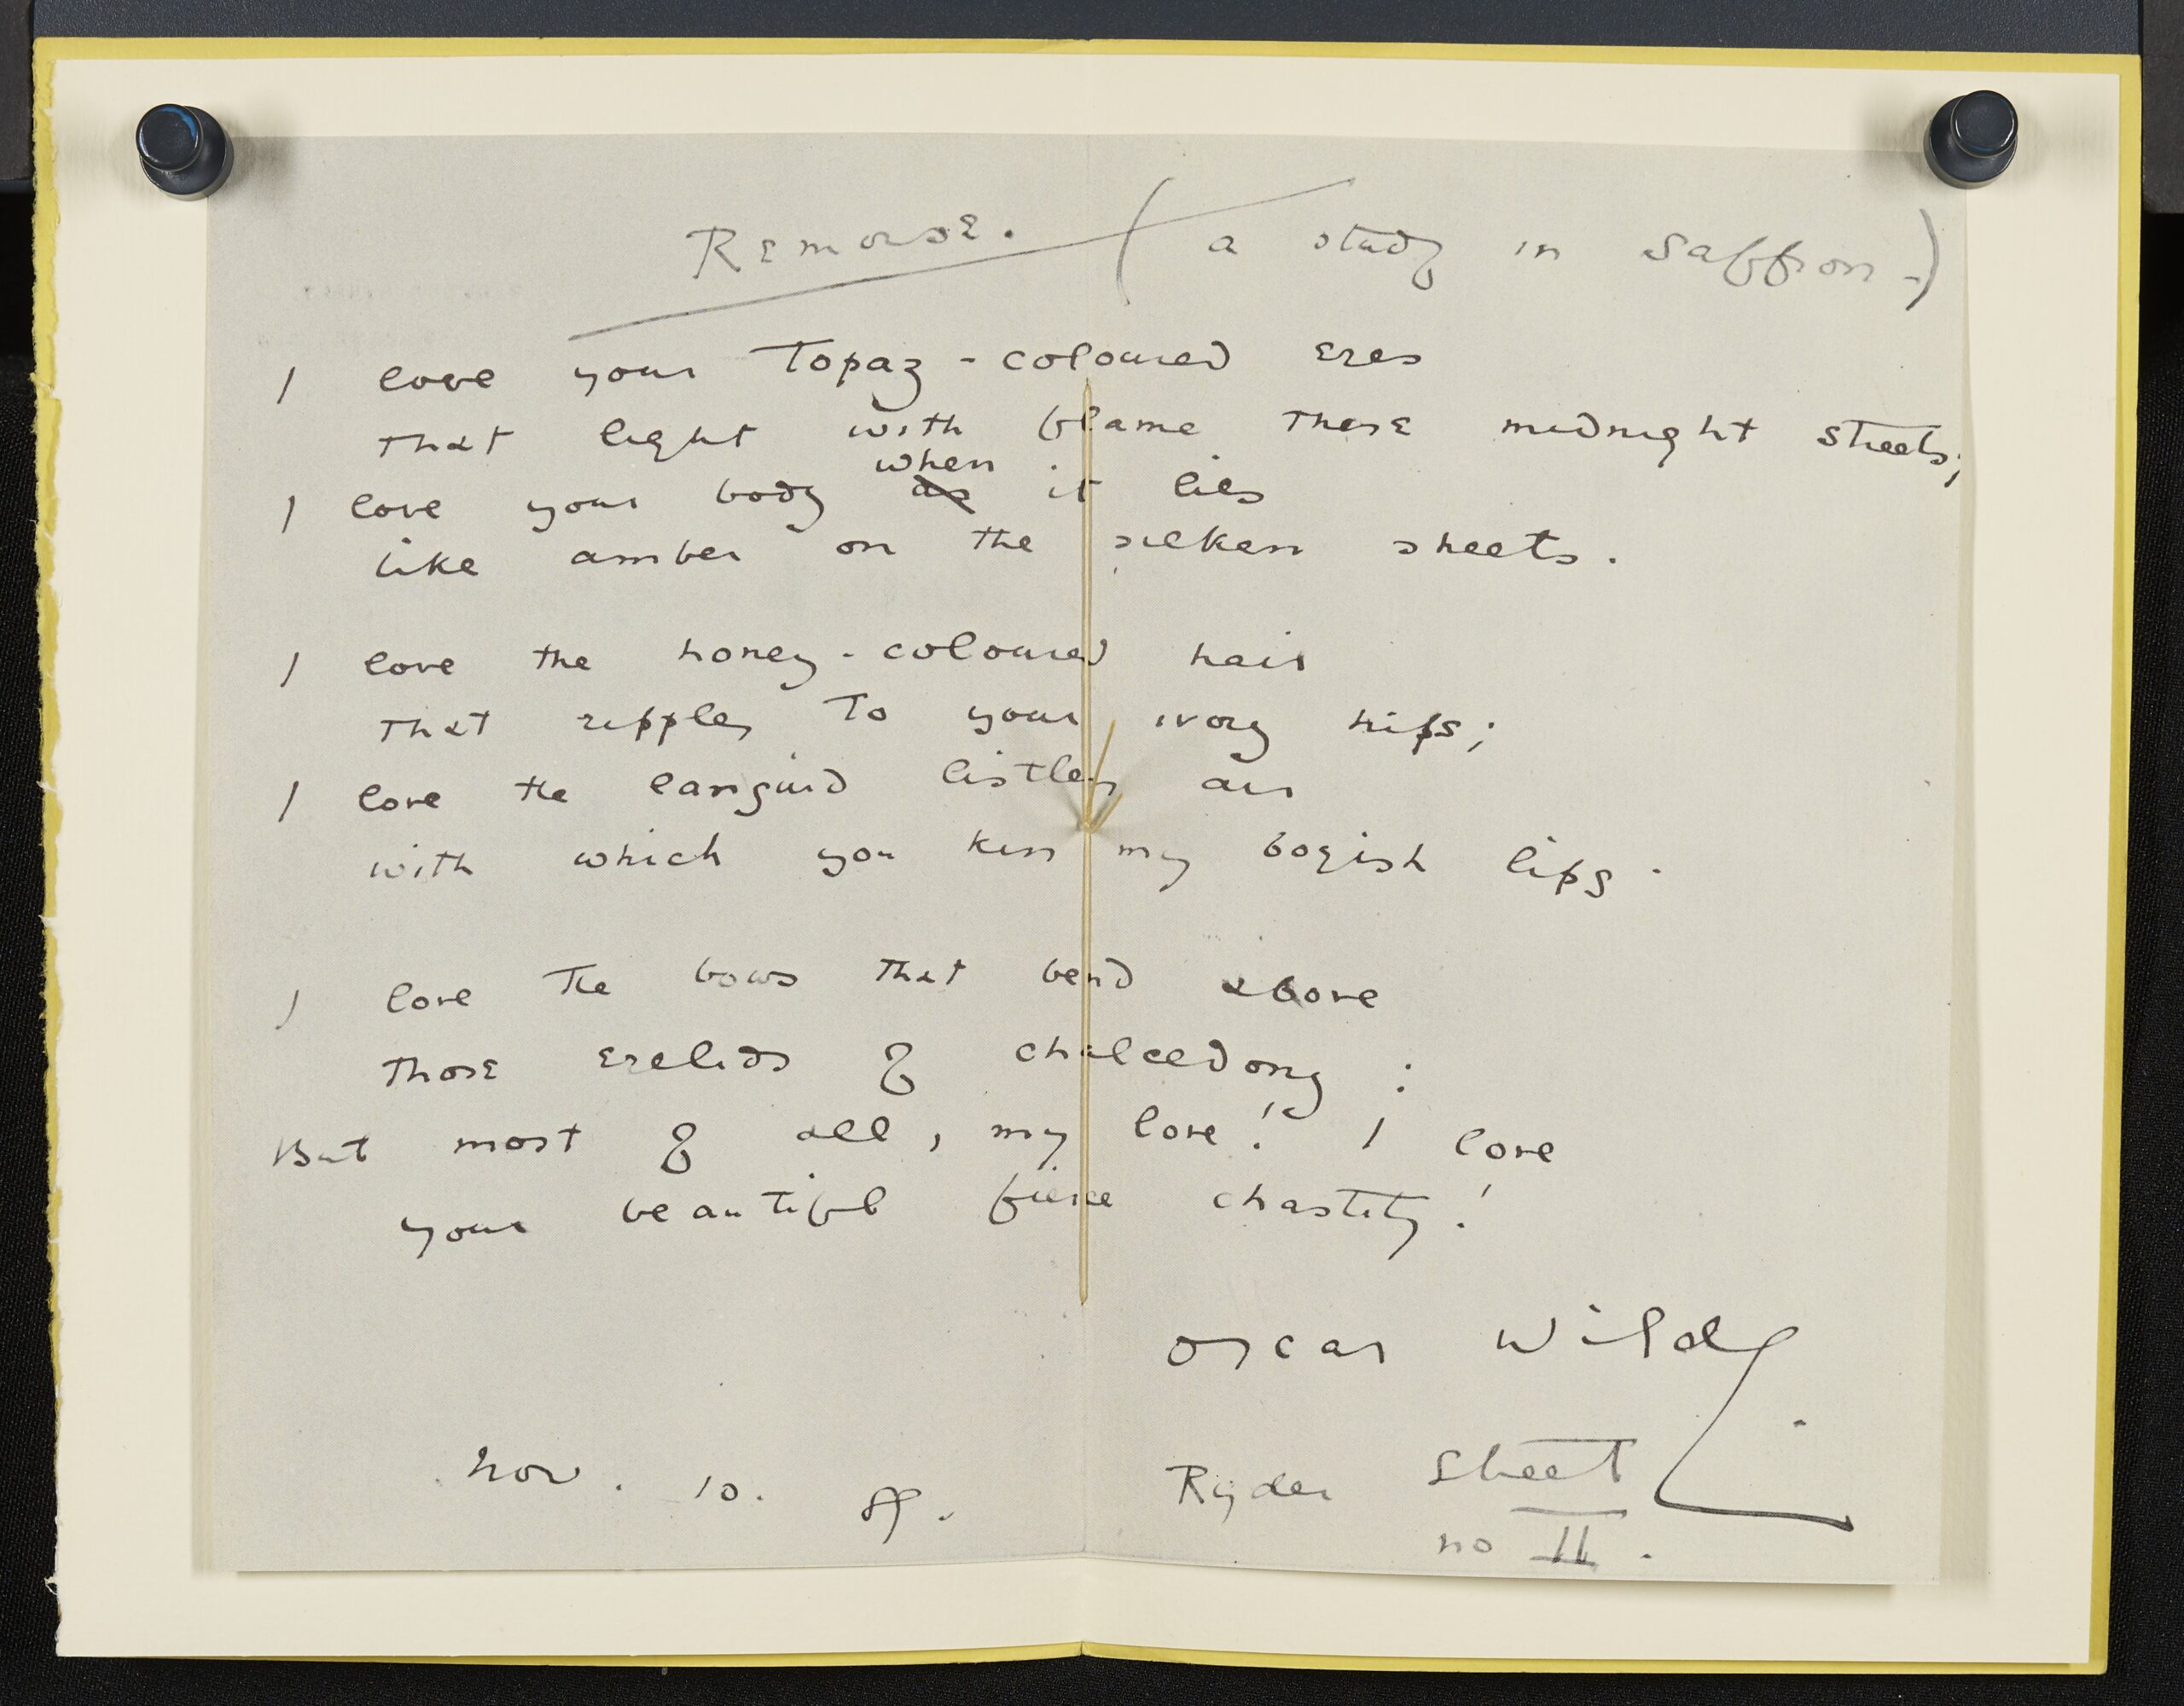 Remorse. (a study in Saffron-)
I love your Topaz-coloured eyes
That light with flame these midnight streets;
I love your body when as it lies
like amber on the silken sheets.
I love the honey-coloured hair
That ripples To your ivory hips;
I love the languid listless air
with which you kiss my boyish lips.
I love The bows that bend above
those eyelids of chalcedony:
But most of all, my love! I love
your beautiful fierce chastity!
Oscar Wilde.
Nov. 10. 89.
Ryder Street
no II.